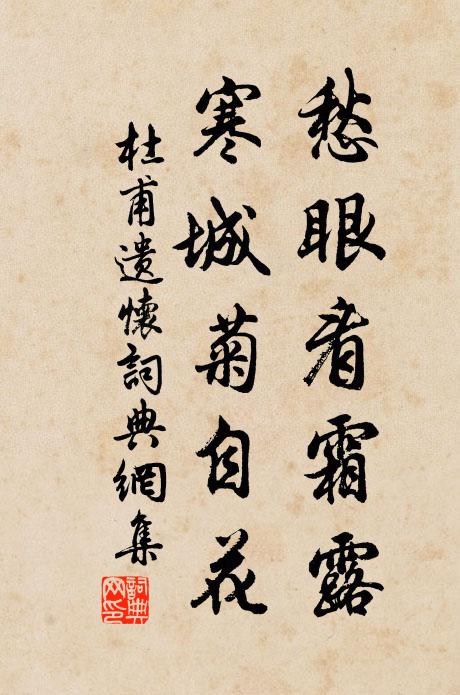 愁眼看霜露
寒城菊自花
杜甫遣懷詞典網集
詞典
网印